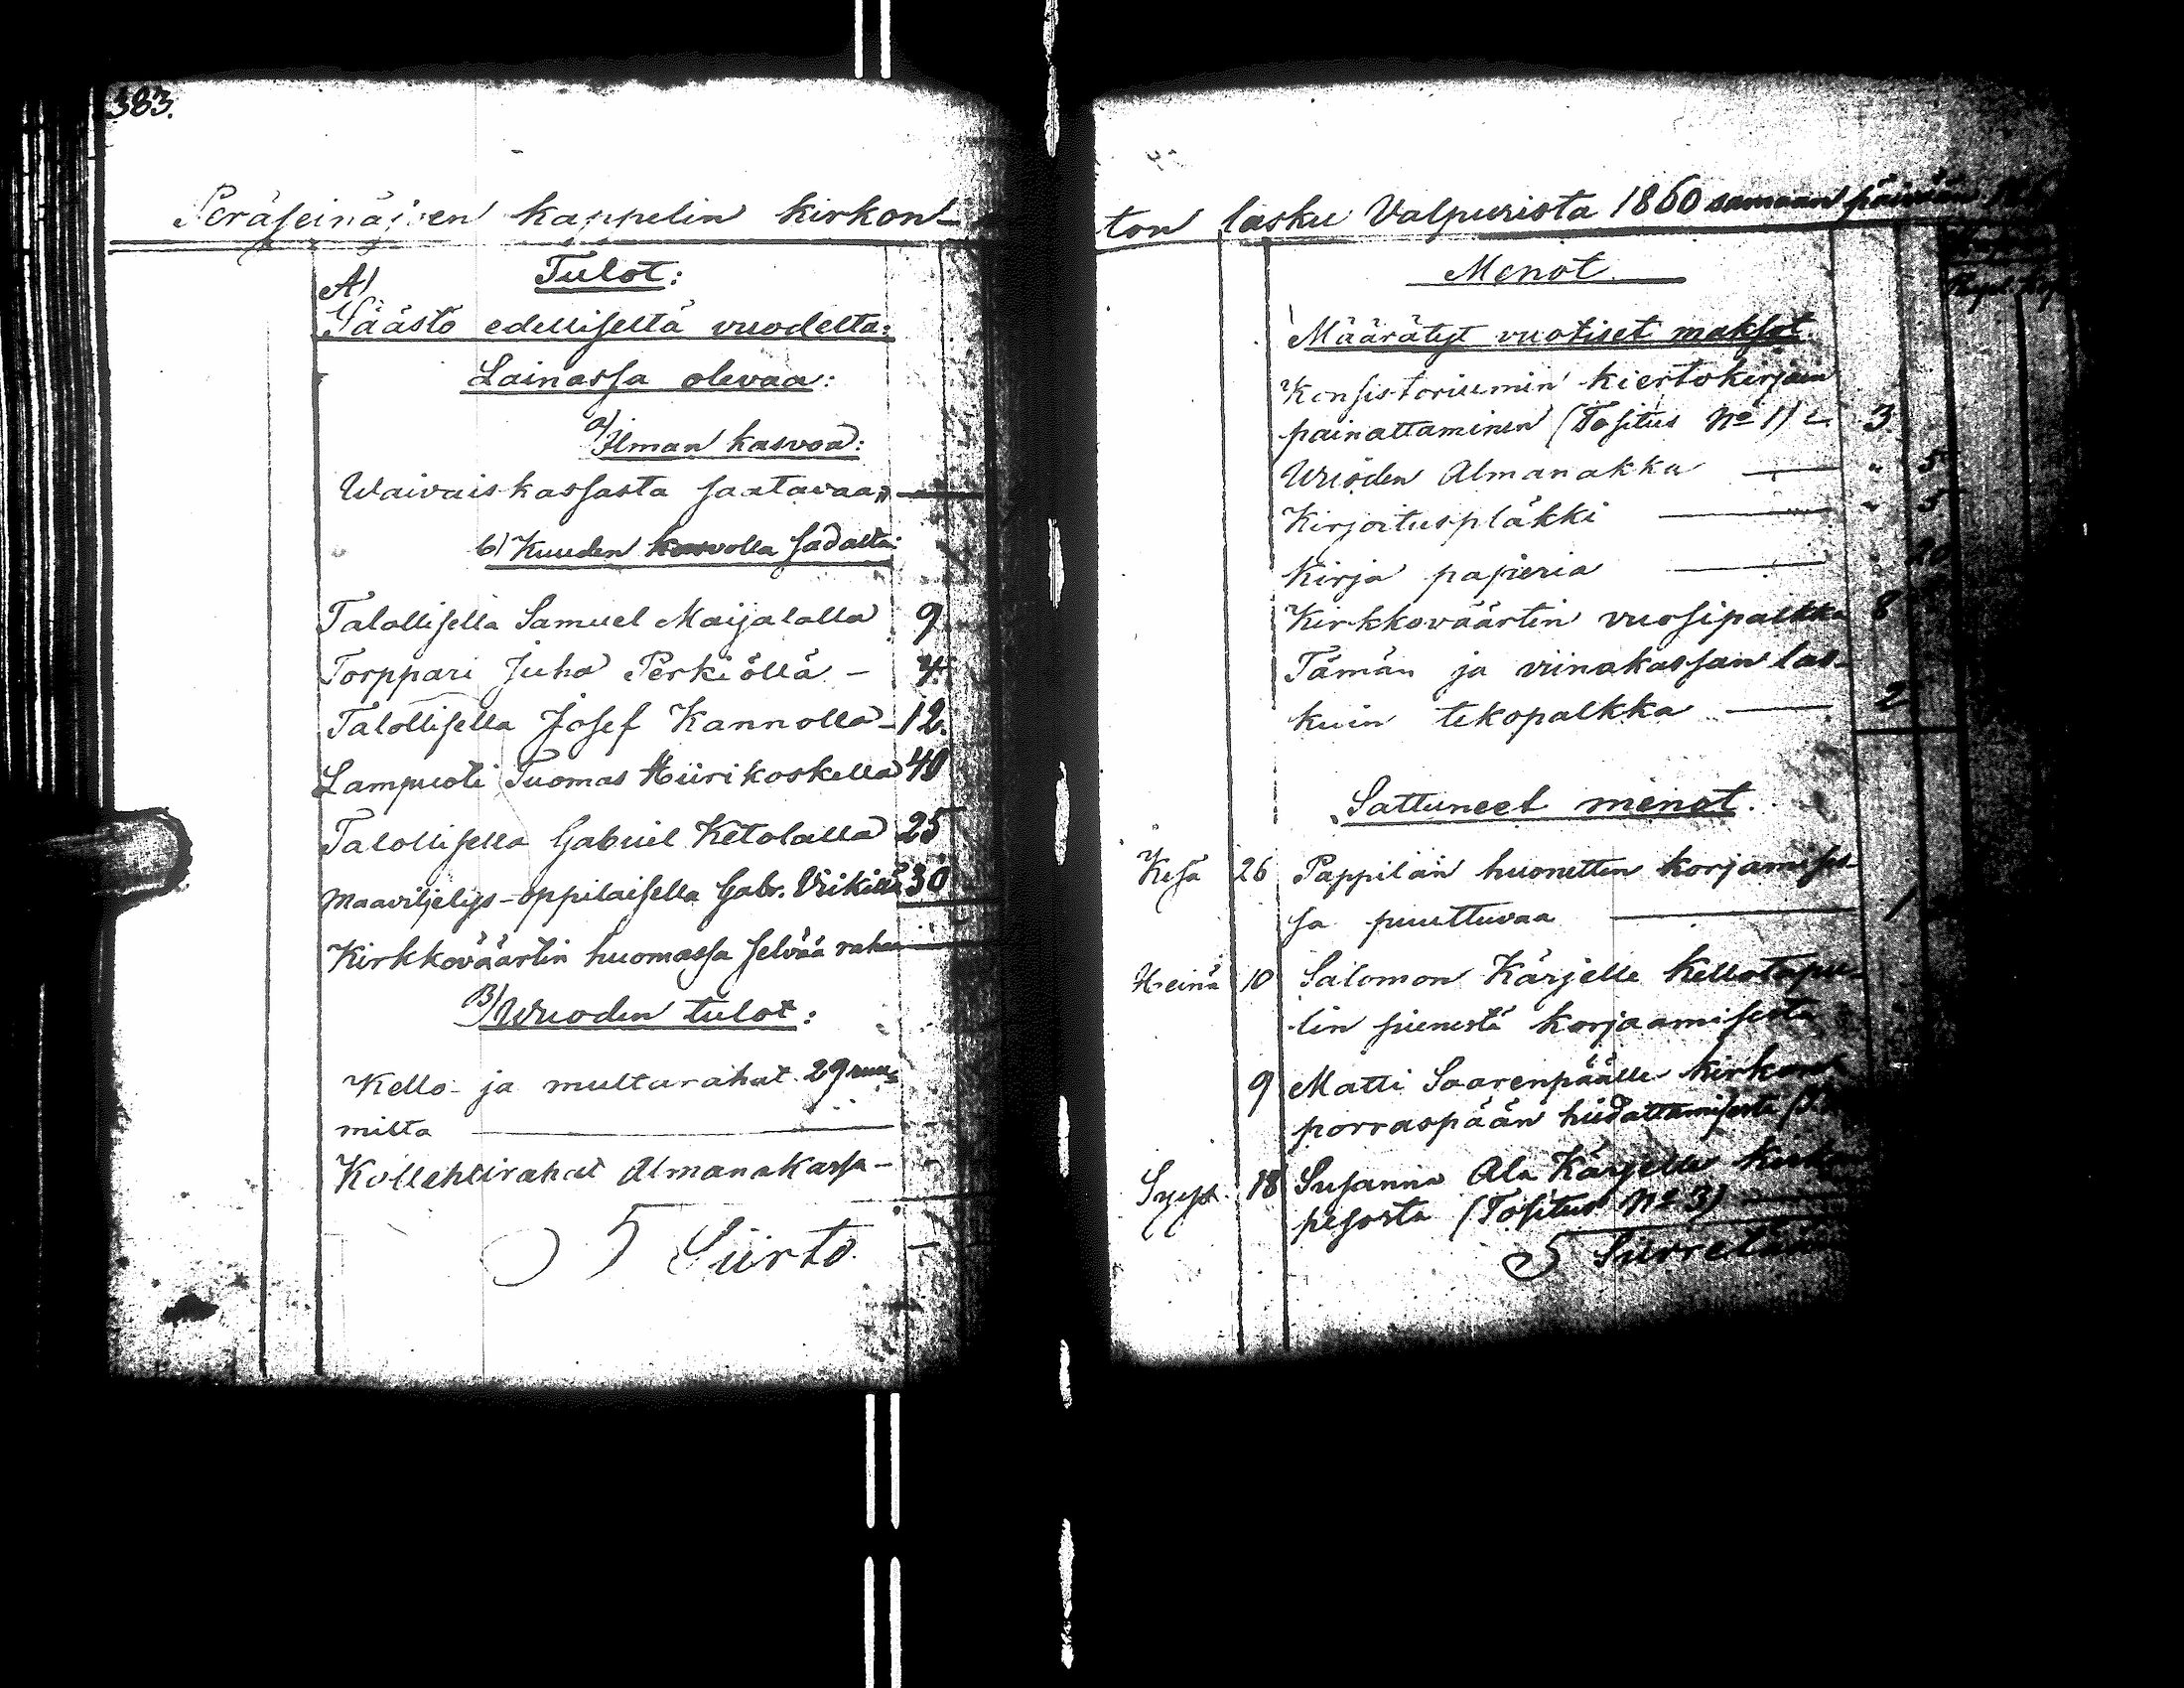 383.
Peräseinäjoen kappelin kirkon-
A) Tulot:
Säästö edelliseltä vuodelta:
Lainassa olevaa:
a) Ilman kasvoa:
Waivaiskassasta saatavaa
b) Kuuden kasvolla sadalta:
Talollisella Samuel Maijalalla 9
Torppari Juho Perkiöllä - 4
Talollisella Josef Kannolla - 12.
Lampuoti Tuomas Hiirikoskella 40
Talollisella Gabriel Ketolalla 25
Maaviljelys-oppilaisella Gabr. 30
Kirkkoväärtin huomassa selvää rahaa
B) Wuoden tulot:
Kello- ja multarahat 29 ruu-
milta
Kollehtirahat Almanakassa -
Siirto
ton lasku Valpurista 1860 samaan päivään
Menot
Määrätyt vuotiset maksot
Konsistoriumin kiertokirjain
painattaminen (Tositus No 1) 3
Wuoden Almanakka " 5
Kirjoituspläkki " 5
Kirja papieria " 20
Kirkkoväärtin vuosipalkka 8
Tämän ja viinakassan las-
kuin tekopalkka 2
Sattuneet menot.
Kesä 26 Pappilan huonetten korjamises-
sa puuttuvaa 1
Heinä 10 Salomon Kärjelle Kellotapu-
lin pienestä korjaamisesta
9 Matti Saarenpäälle kirkon
porraspään
Syys. 18 Susanna Ala Kärjelle
pesosta (Tositus No 3)
Siirretään